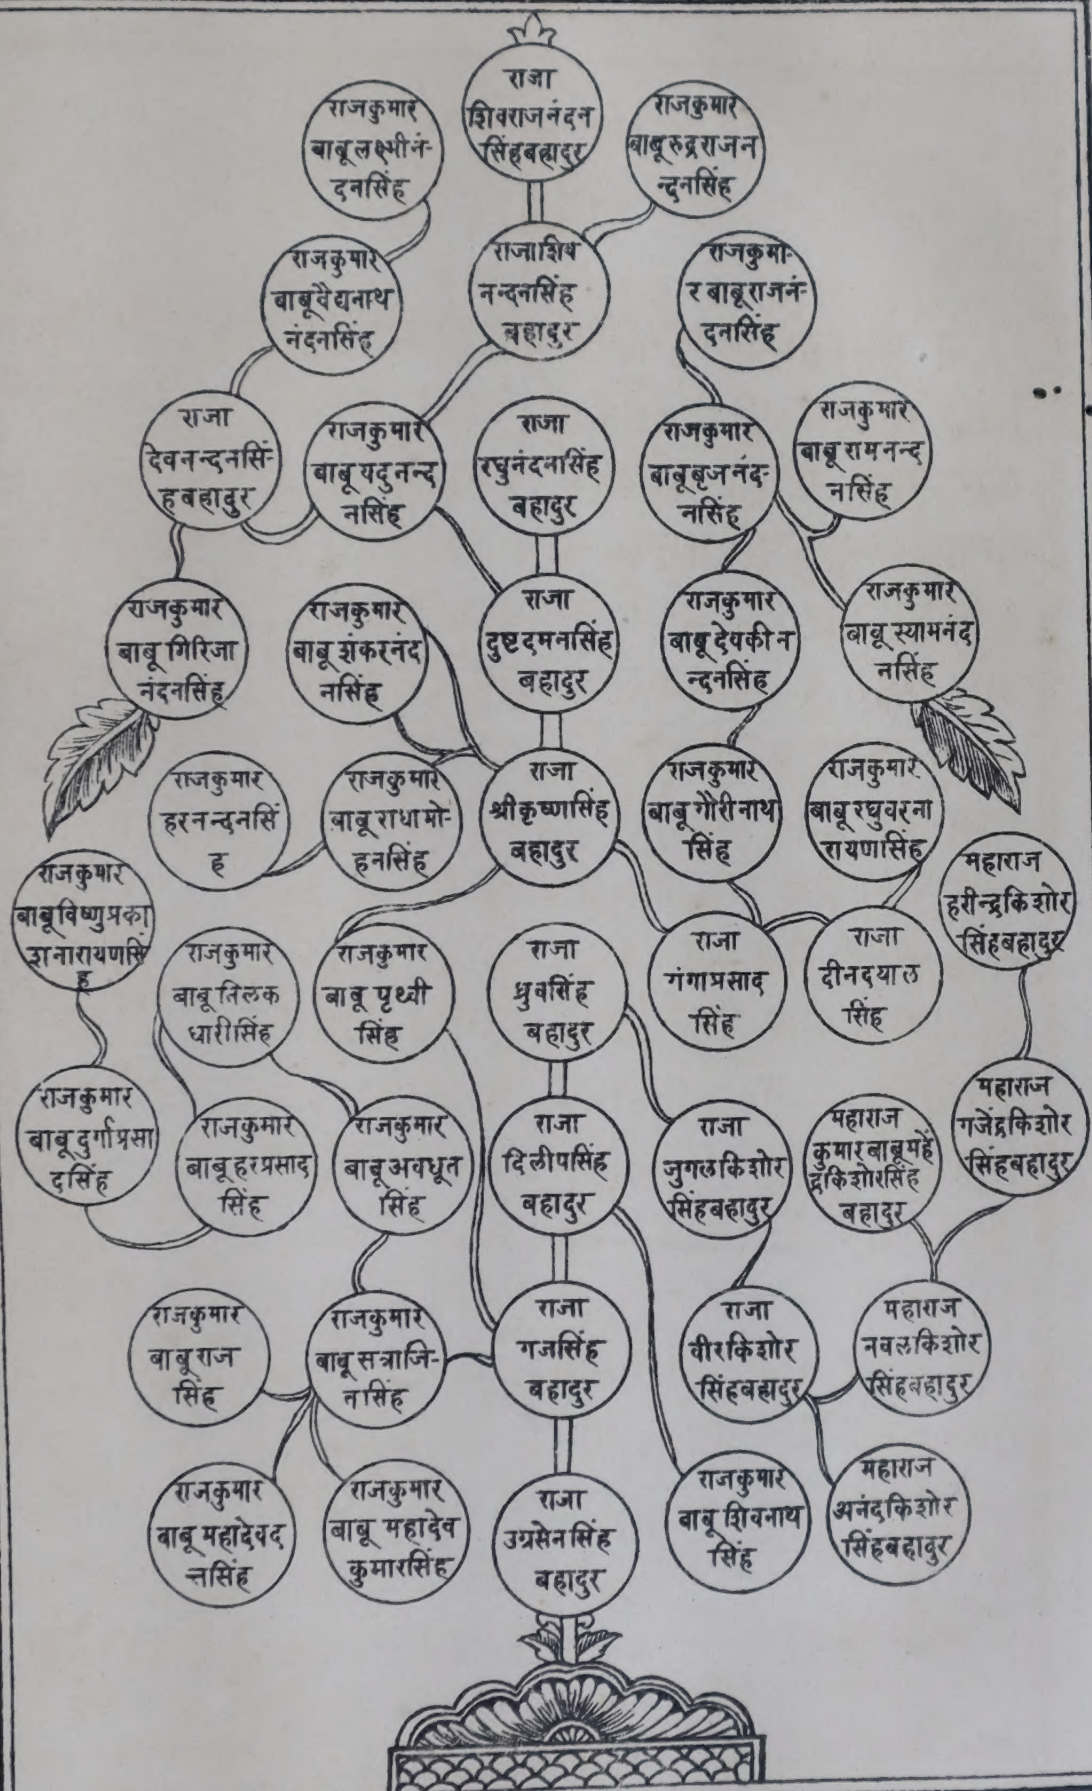 राजा
शिवराजनंदन
सिंहबहादुर
राजकुमार
बाबूलक्ष्मीनं-
दनसिंह
राजकुमार
बाबूरुद्रराजन
न्दनसिंह
राजकुमार
बाबूवैद्यनाथ
नंदनसिंह
राजाशिव
नन्दनसिंह
बहादुर
राजकुमा-
र बाबूराजनं-
दनसिंह
राजा
देवनन्दनसिं-
हबहादुर
राजकुमार
बाबू यदुनन्द
नसिंह
राजा
रघुनंदनसिंह
बहादुर
राजकुमार
बाबूबृजनंद-
नसिंह
राजकुमार
बाबू रामनन्द
नसिंह
राजकुमार
बाबू गिरिजा
नंदनसिंह
राजकुमार
बाबू शंकरनंद
नसिंह
राजा
दुष्टदमनसिंह
बहादुर
राजकुमार
बाबू देवकीन
न्दनसिंह
राजकुमार
बाबू स्यामनंद
नसिंह
राजकुमार
हरनन्दनसिं
ह
राजकुमार
बाबू राधामो-
हनसिंह
राजा
श्रीकृष्णसिंह
बहादुर
राजकुमार
बाबू गौरीनाथ
सिंह
राजकुमार
बाबू रघुवरना
रायणसिंह
महाराज
हरीन्द्रकिशोर
सिंहबहादुर
राजकुमार
बाबूविष्णुप्रका
शनारायणसिं
ह
राजकुमार
बाबू तिलक
धारीसिंह
राजकुमार
बाबू पृथ्वी
सिंह
राजा
ध्रुवसिंह
बहादुर
राजा
गंगाप्रसाद
सिंह
राजा
दीनदयाल
सिंह
राजकुमार
बाबू दुर्गाप्रसा
दसिंह
राजकुमार
बाबूहरप्रसाद
सिंह
राजकुमार
बाबू अवधूत
सिंह
राजा
दिलीपसिंह
बहादुर
राजा
जुगलकिशोर
सिंहबहादुर
महाराज
कुमारबाबूमहें
द्रकिशोरसिंह
बहादुर
महाराज
गजेंद्रकिशोर
सिंहबहादुर
राजकुमार
बाबू राज
सिंह
राजकुमार
बाबू सत्राजि-
तसिंह
राजा
गजसिंह
बहादुर
राजा
वीरकिशोर
सिंहबहादुर
महाराज
नवलकिशोर
सिंहबहादुर
राजकुमार
बाबू महादेवद
त्तसिंह
राजकुमार
बाबू महादेव
कुमारसिंह
राजा
उग्रसेनसिंह
बहादुर
राजकुमार
बाबू शिवनाथ
सिंह
महाराज
अनंदकिशोर
सिंहबहादुर